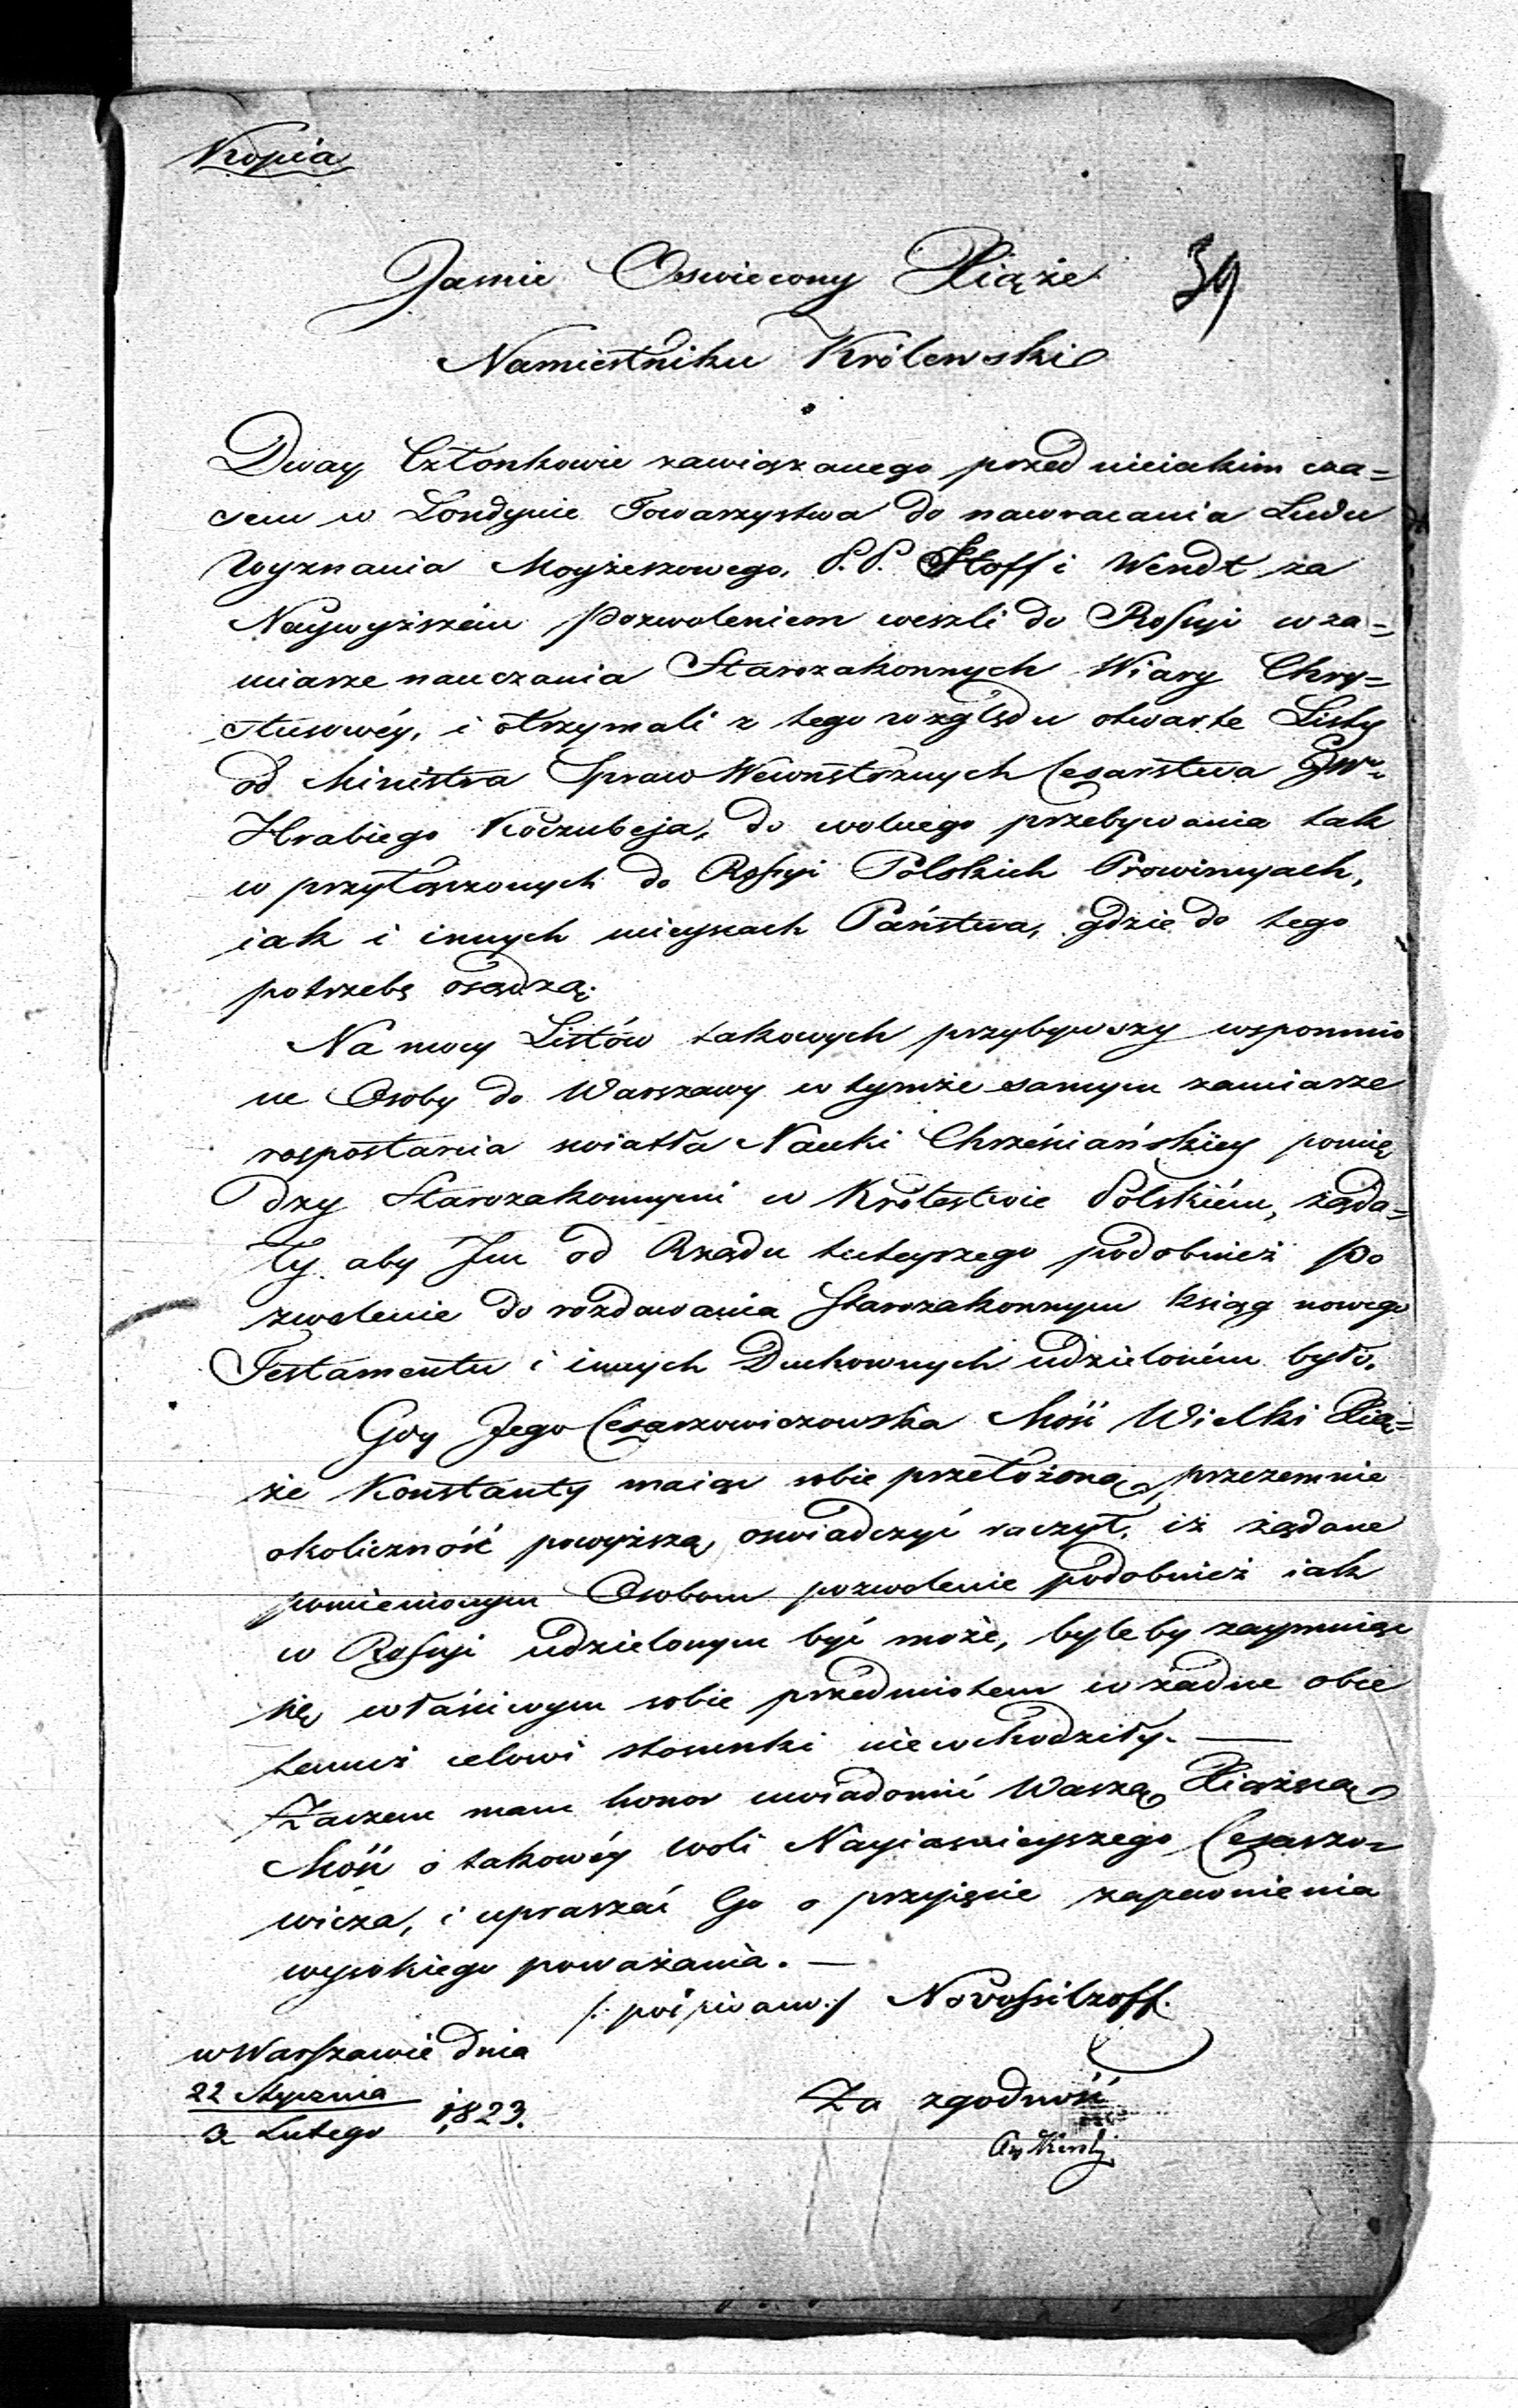 Kopia
39
Jasnie Oswiecony Xiąże
Namiestniku Królewski
Dway Członkowie zawiązanego przed nieiakim cza=
sem w Londynie Towarzystwa do nawracania Ludu
Wyznania Moyżeszowego, P.P. Hoff i Wendt za
Naywyższém pozwoleniem weszli do Rossyi w za=
miarze nauczania Starozakonnych Wiary Chry=
stusowéy, i otrzymali z tego względu otwarte Listy
od Ministra Spraw Wewnętrznych Cesarstwa JW
Hrabiego Koczubeja, do wolnego przebywania tak
w przyłączonych do Rossyi Polskich Prowincyach,
iak i innych mieyscach Państwa, gdzie do tego
potrzebę osądzą.
Na mocy Listów takowych przybywszy wspomnio
ne Osoby do Warszawy w tymże samym zamiarze
rospostarcia swiatła Nauki Chrześciańskiey pomię
dzy Starozakonnymi w Królestwie Polskiém, żąda=
ły aby Im od Rządu tuteyszego podobnież po
zwolenie do rozdawania Starozakonnym ksiąg nowego
Testamentu i innych Duchownych udzieloném było.
Gdy Jego Cesarzowiczowska Mość Wielki Xią=
że Konstanty maiąc sobie przełożoną przezemnie
okoliczność powyższą, oswiadczyć raczył, iż żądane
pomienionym Osobom pozwolenie podobnież iak
w Rossyi udzielonym być może, byleby zaymuiąc
się właściwym sobie przedmiotem w żadne obce
temuż celowi stosunki niewchodziły. —
Zaczem mam honor uwiadomić Waszą Xiążęcą
Mość o takowéy woli Nayiasnieyszego Cesarzo=
wicza, i upraszać Go o przyjęcie zapewnienia
wysokiego poważania. —
/: podpisano :/ Novossilzoff.
w Warszawie dnia
22 Stycznia
3 Lutego 1823.
Za zgodność